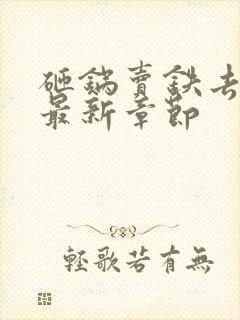 砸鍋賣鉄去
最新章節
輕歌若有無